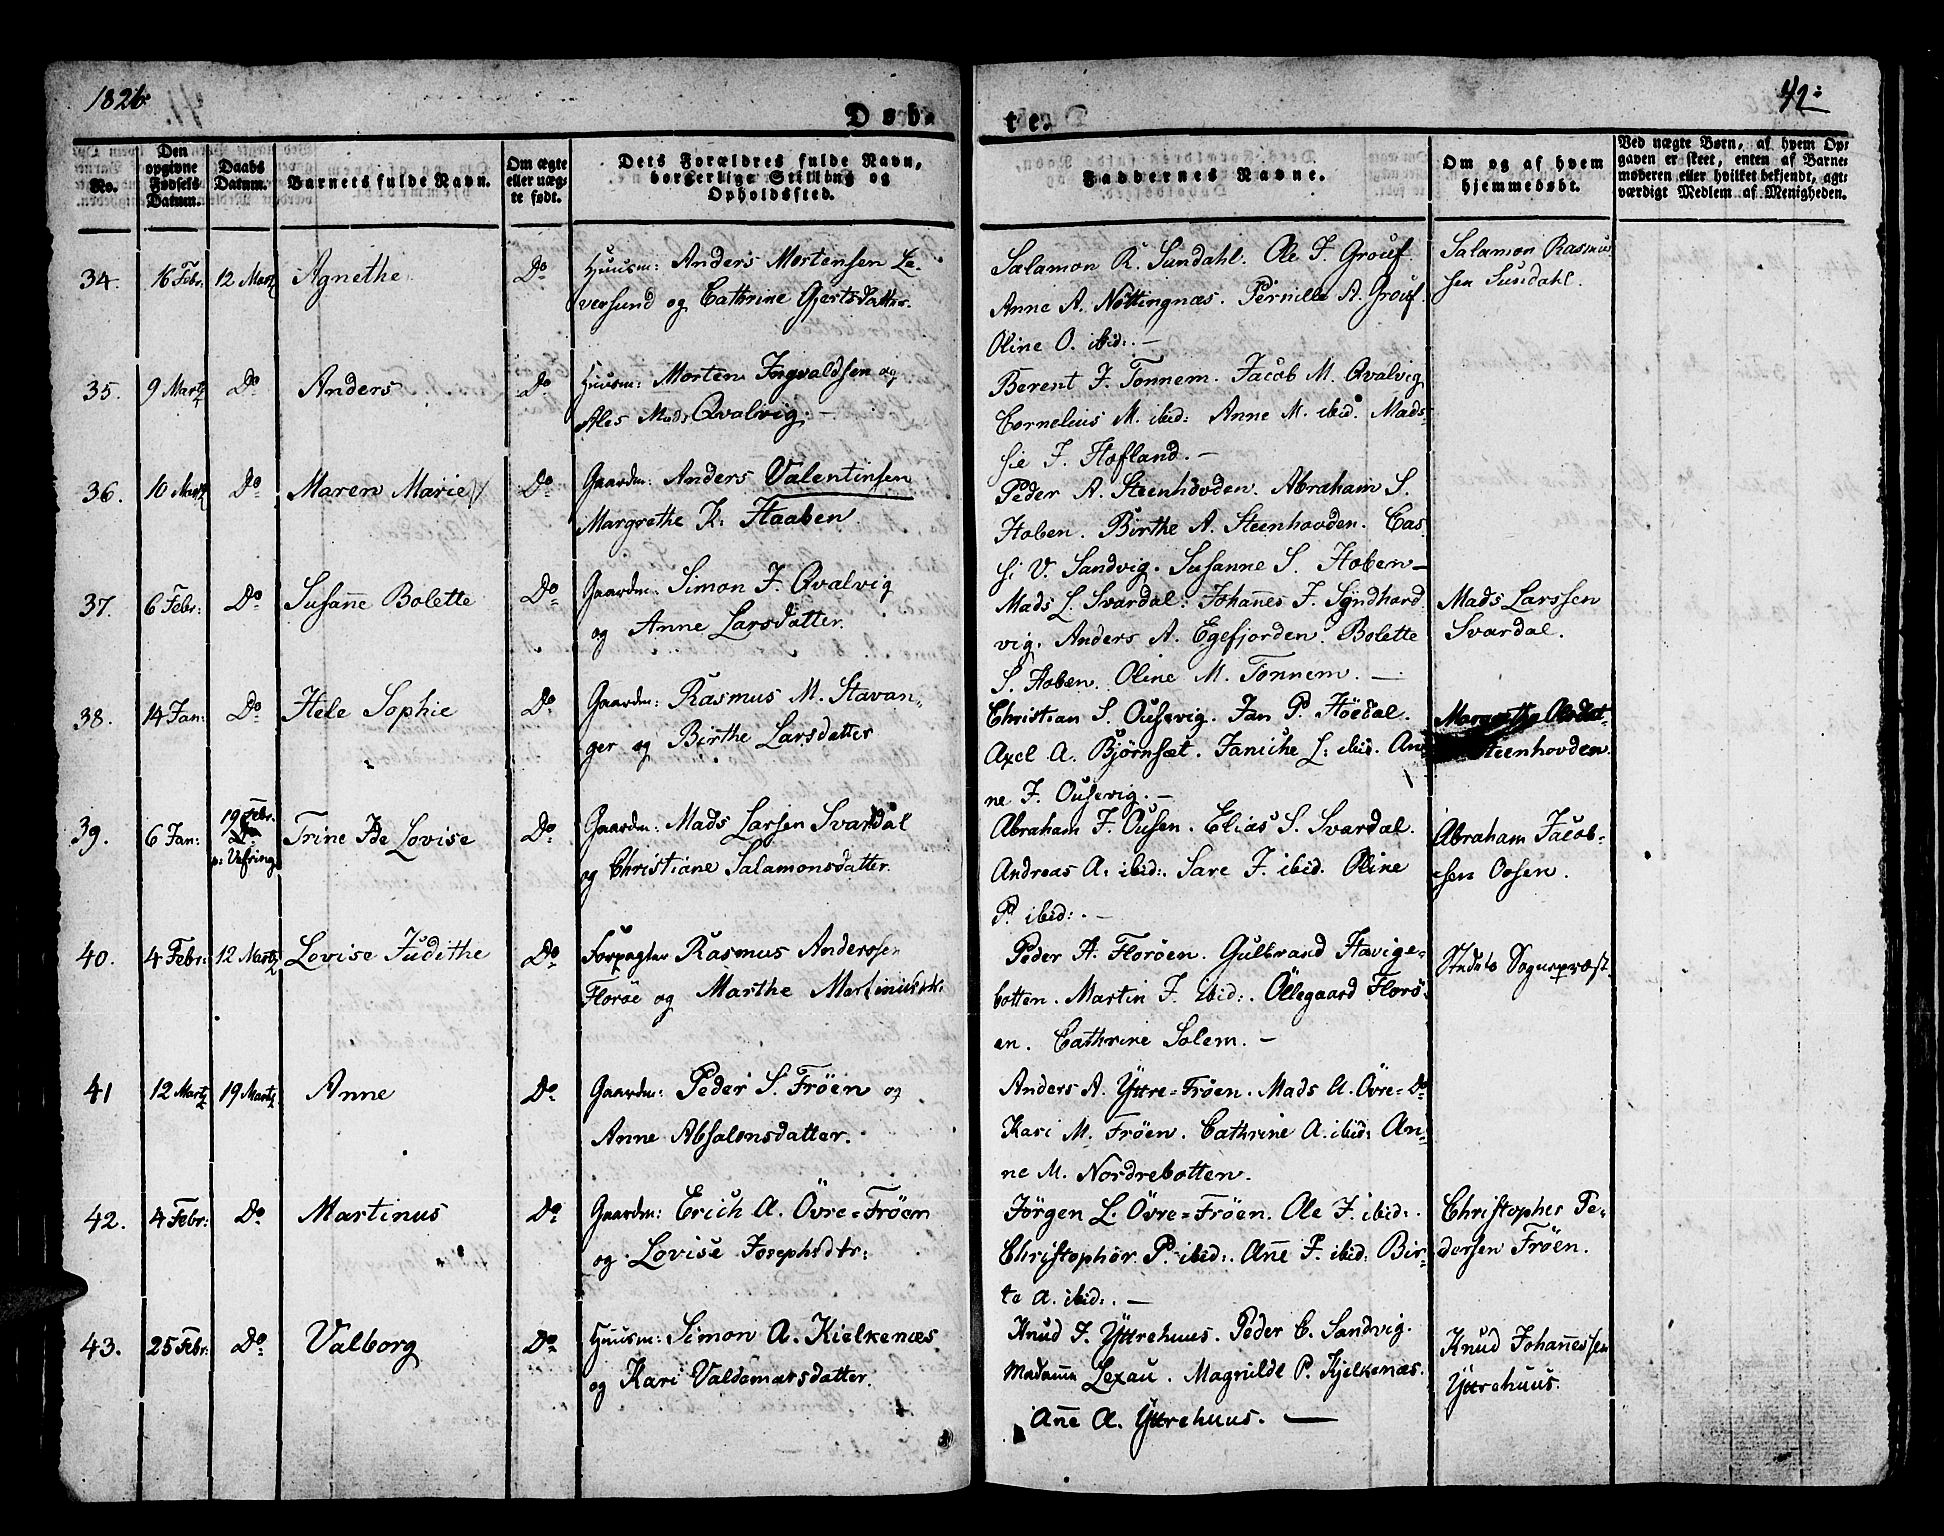 1826.
42.
Døb-
te.
No.
Den opgivne Fødsels Datum.
Daabs Datum.
Barnets fulde Navn.
Om ægte eller uægte født.
Dets Forældres fulde Navn, borgerlige Stilling og Opholdssted.
Faddernes Navne.
Om og af hvem hjemmedøbt.
Ved uægte Børn, af hvem Opgaven er skeet, enten af Barnemoderen eller hvilket bekjendt, agtværdigt Medlem af Menigheden.
34. 16 Febr. 12 Martz Agnethe Do
Huusm: Anders Mortensen Le-
versund og Cathrine Gjertsdatter.
Salamon R. Sundahl. Ole J. Grouf.
Anne A. Nøttingnæs. Pernille A. Grouf.
Oline O. ibid:. —
Salamon Rasmus
sen Sundahl.
35. 9 Martz Do Anders Do
Huusm: Morten Ingvaldsen og
Ales Mads Qvalvig. —
Berent J. Tonnem. Jacob M. Qvalvig
Cornelius M. ibid: Anne M. ibid. Mads-
sie J. Hofland. —
36. 10 Martz Do Maren Marie Do
Gaardm: Anders Valentinsen
Margrethe K. Haaben.
Peder A. Steenhovden. Abraham S.
Hoben. Birthe A. Steenhovden. Cas
si V. Sandvig. Susanne S. Hoben —
37. 6 Febr: Do Susañe Bolette Do
Gaardm: Simon J. Qvalvig
og Anne Larsdatter.
Mads L. Svardal. Johañes J. Syndhard
vig. Anders A. Egefjorden. Bolette
S. Hoben. Oline M. Tonnem. —
Mads Larssen
Svardal.
38. 14 Jan: Do Hele Sophie Do
Gaardm: Rasmus M. Stavan-
ger og Birthe Larsdatter
Christian S. Ousevig. Jan P. Høedal.
Axel A. Bjørnset. Janiche L: ibid. An
ne J. Ousevig. —
Margrethe
Steenhovden.
39. 6 Jan: 19 Febr. p: Vefring Trine Ide Lovise Do
Gaardm: Mads Larsen Svardal
og Christiane Salamonsdatter.
Abraham J. Ousen. Elias S. Svardal.
Andreas A. ibid:. Sare J. ibid. Oline
P. ibid:. —
Abraham Jacob-
sen Oosen.
40. 4 Febr: 12 Martz Lovise Judithe Do
Forpagter Rasmus Anderssen
Florøe og Marthe
Peder A. Florøen. Gulbrand Havige-
botten. Martin J. ibid:. Öllegaard Florö-
en. Cathrine Solem. —
Stedets Sognepræst.
41 12 Martz 19 Martz Anne Do
Gaardm: Peder S. Fröen og
Anne Absalonsdatter.
Anders A. Yttre=Fröen. Mads A. Övre= Do
Kari M. Fröen. Cathrine A. ibid: An-
ne M. Nordrebotten.
42. 4 Febr: Do Martinus Do
Gaardm: Erich A. Övre=Fröen
og Lovise Josephsdtr:
Jörgen L. Övre=Fröen. Ole J. ibid:.
Christophor P. ibid:. Añe J. ibid: Bir-
te A. ibid:. —
Christopher Pe-
dersen Fröen.
43. 25 Febr: Do Valborg Do
Huusm: Simon A. Kielkenæs
og Kari Valdemarsdatter.
Knud J. Yttrehuus. Peder C. Sandvig.
Madame Lexau. Magnilde P. Kjelkenæs.
Añe A. Yttrehuus. —
Knud Johañessen
Yttrehuus.